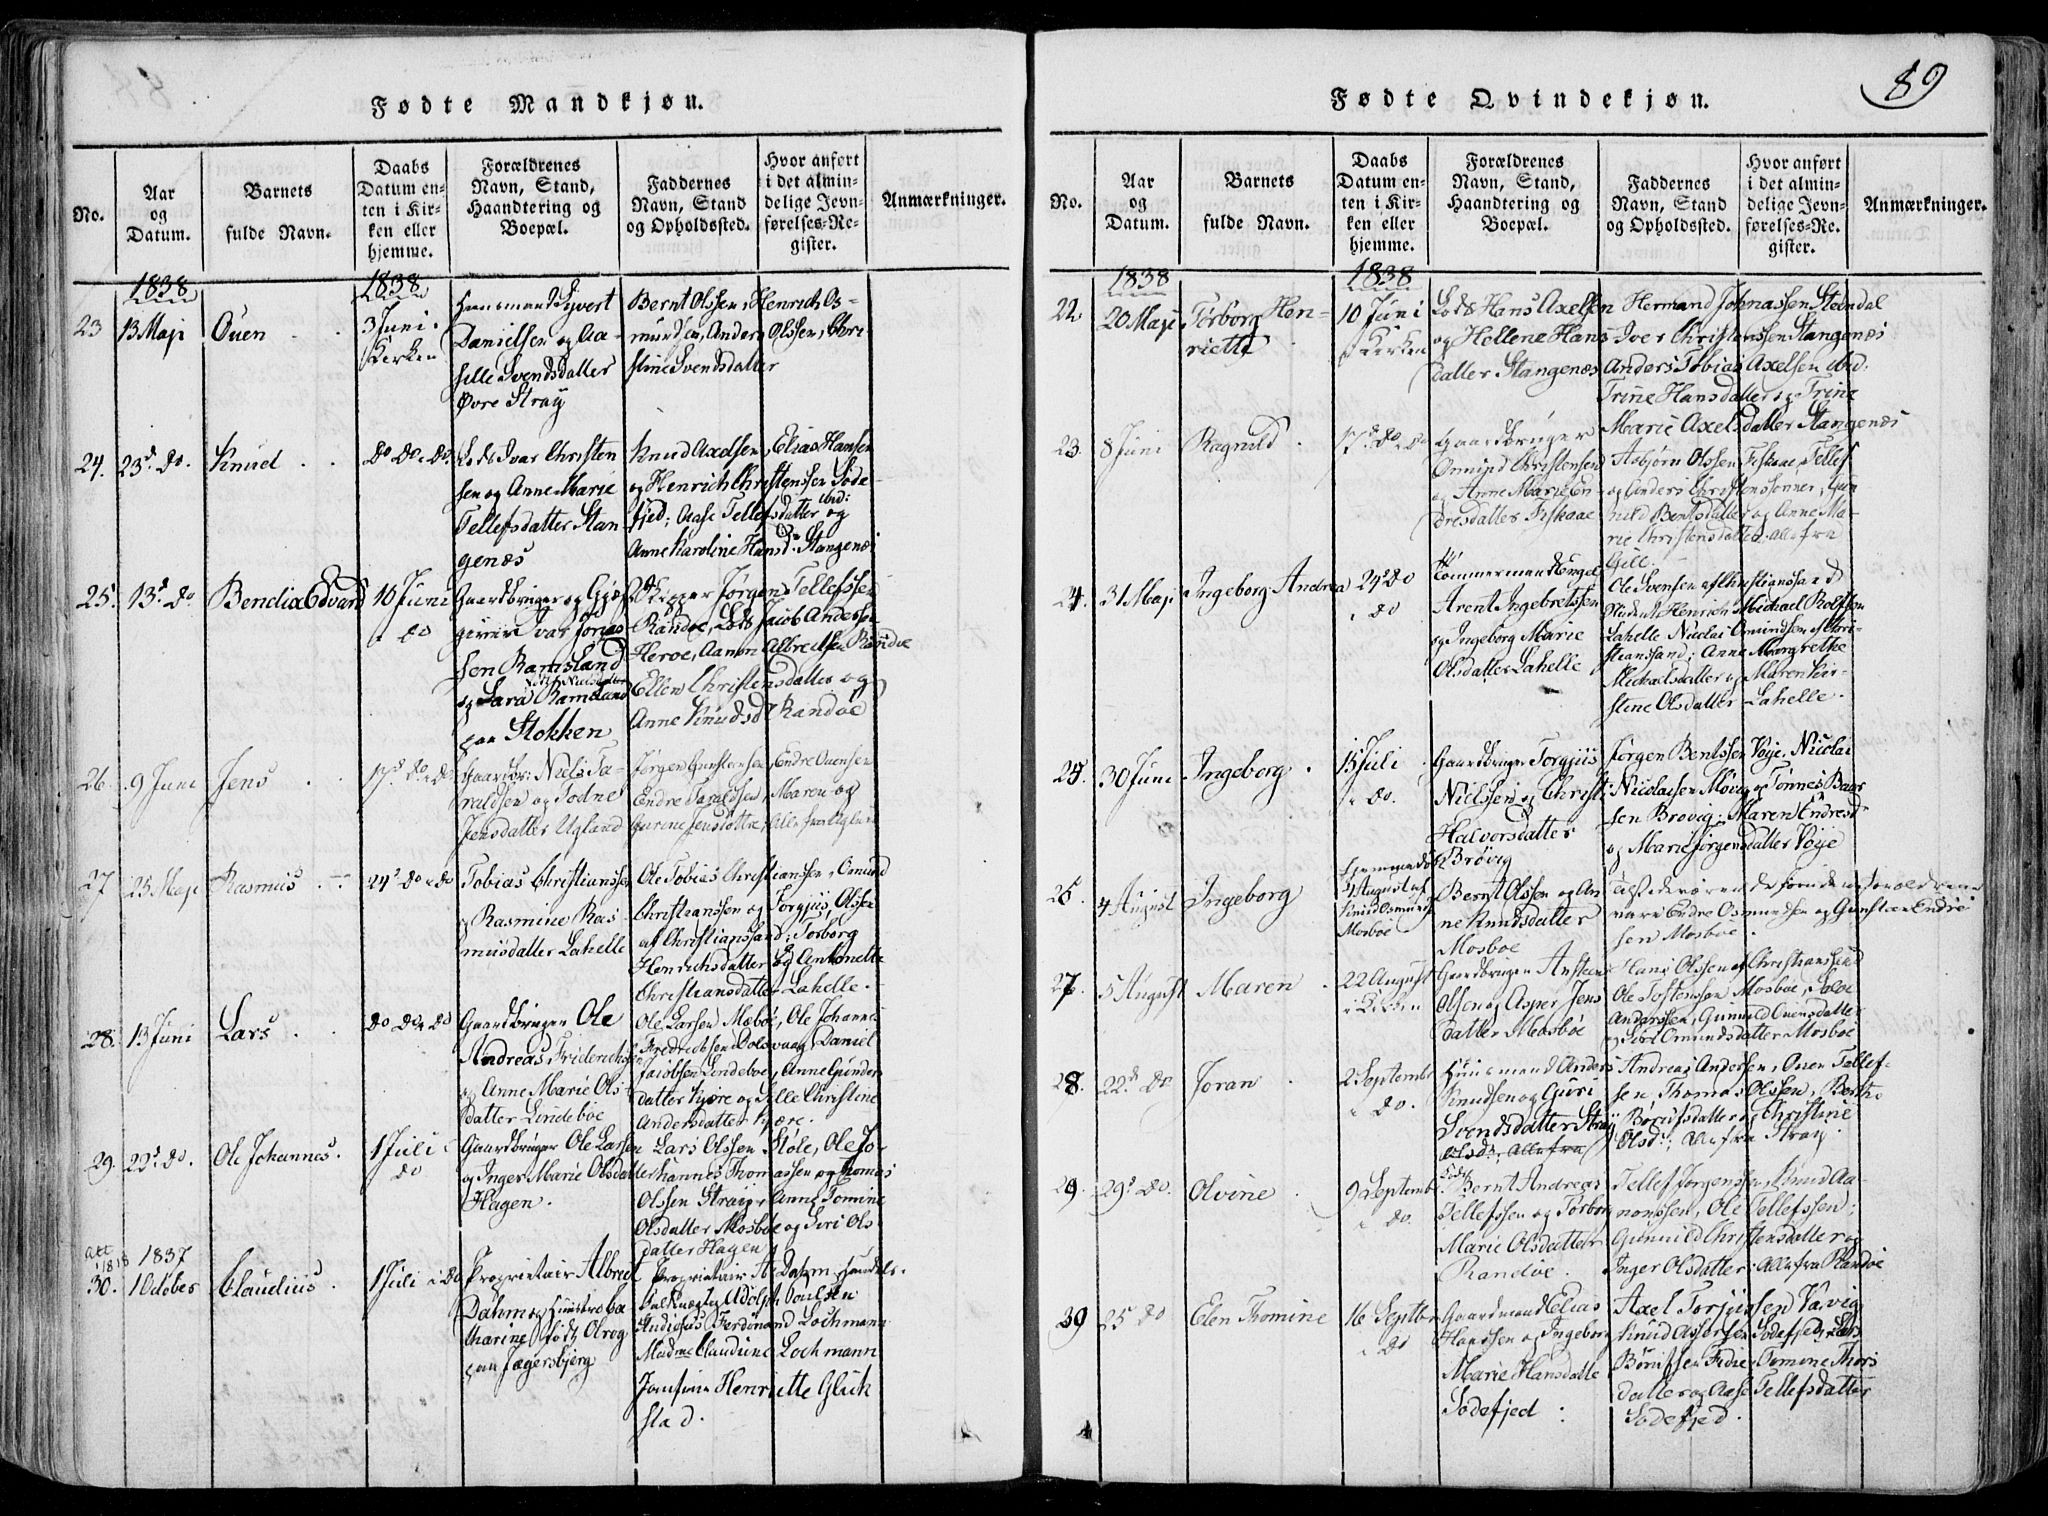 89
Fødte Mandkjøn.
No.
Aar
og
Datum.
Barnets
fulde Navn.
Daabs
Datum en-
ten i Kir-
ken eller
hjemme.
Forældrenes
Navn, Stand,
Haandtering og
Boepæl.
Faddernes
Navn, Stand
og Opholdssted.
Hvor anført
i det almin-
delige Jevn-
førelses-Re-
gister.
Anmærkninger.
1838
1838
23
13 Maji
Ouen
3 Juni
Kirken
Huusmand Syvert
Danielsen og Aa-
sille Svendsdatter
Øvre Stray
Bernt Olssen, Henrich Os-
mundsen, Anders Olssen, Chri-
stine Svendsdatter
24.
23d. do.
Knud
do do do
Lods Ivar Christen
sen og Anne Marie
Tellefsdatter Stan
genæs
Knud Axelsen, Elias Hansen
og Henrich Christenssen Søde-
fjed; Aase Tellefsdatter ibid:
og
Anne Karoline Hansd: Stangenæs
25.
13d. do
Bendix Edvard
10 Juni
i do
Gaardbruger og
Ivar Jonas
sen Ramsland
og Sara Ramsland
paa Stokken
Jørgen Tellefssen
Randøe, Lods Jacob Anderssen
Herøe, Aanon Albretsen Randøe
Ellen Christensdatter og
Anne Knudsd Randøe
26.
9 Juni
Jens
17d do i do
Gaardbr: Niels Ta-
raldsen og Todne
Jensdatter Ugland
Jørgen Gunstensen, Endre Ouensen
Endre Taraldsen, Maren og
Gurine Jensdøttre, Alle fra Ugland
27
25 Maji
Rasmus
24d do i do
Tobias Christianssen
og Rasmine Ras-
musdatter Lahelle
Ole Tobias Christianssen, Omund
Christianssen og Torgjus Olssen
af Christianssand; Torborg
Henrichsdatter og Antonette
Christiansdatter Lahelle.
28.
13 Juni
Lars
do do i do
Gaardbruger Ole
Andreas Friderichsen
og Anne Marie Ols-
datter Lindeboe
Ole Larsen Mæbøe, Ole Johannes
Fredrichsen Dolsvaag, Daniel
Jacobsen Lindeboe, Anne Gunders
datter Kjære og Sille Christine
Andersdatter Kjære.
29.
22d. do.
Ole Johannes.
1 Juli i
do
Gaardbruger Ole Larsen
og Inger Marie Olsdatter
Hagen.
Lars Olssen Støle, Ole Jo-
hannes Thomassen og Thomas
Olssen Stray, Anne Tomine
Olsdatter Mosbøe og Siri Ols
datter Hagen
1837
30.
1 October
Claudius
1 Juli i do
Proprietair Albret
Dahm og Hustroe Ca
tharine født Olrog
paa Jægersbjerg
Proprietair A. Dahm, Handels-
fuldmægtig Adolph Poulsen
Studiosus Ferdinand Lochmann
Madme Claudine Lochmann
Jomfrue Henriette Glück
stad.
Fødte Qvindekjøn.
No.
Aar
og
Datum.
Barnets
fulde Navn.
Daabs
Datum en-
ten i Kir-
ken eller
hjemme.
Forældrenes
Navn, Stand,
Haandtering og
Boepæl.
Faddernes
Navn, Stand
og Opholdssted.
Hvor anført
i det almin-
delige Jevn-
førelses-Re-
gister.
Anmærkninger.
1838
1838
22
20 Maji
Torborg Hen-
riette
10 Juni
i Kirken
Lods Hans Axelsen
og Hellene Hans
datter Stangenæs
Hermand Johnassen Steendal
Iver Christenssen Stangenæs
Anders Tobias Axelsen ibid.
Trine Hansdatter og Trine
Marie Axelsdatter Stangenæs
23.
8 Juni
Ragnild
17d do i do
Gaardbruger
Omund Christensen
og Anne Marie En-
dresdatter Fiskaae
Asbjørn Olssen Fiskaae, Tellef
og Anders Christenssønner, Gun
nild Berntsdatter og Anne Ma-
rie Christensdatter. Alle fra
Gill.
24.
31 Maji
Ingeborg Andrea
24d do
i do
Tømmermand Engel
Arent Ingebretssen
og Ingeborg Marie
Olsdatter Lahelle
Ole Svensen af Christianssand
Student Henrich Michael Rolfsen
Lahelle Nicolai Omundsen af Chri-
stianssand; Anne Margrethe
Michaelsdatter og Maren Kir-
stine Olsdatter Lahelle.
25.
30 Juni
Ingeborg.
15 Juli
i do.
Gaardbruger Torgjus
Nielssen og Christi
Halvorsdatter
Brøvig
Jørgen Bentssen Vøje, Nicolai
Nicolaisen Møvig og Tønnes Baar
sen Brøvig; Maren Endresd
og Marie Jørgensdatter Vøje
25.
4 August
Ingeborg
Hjemmedøbt
August af
Knud Osmundsen
Mosboe
Bernt Olssen og An
ne Knudsdatter
Mosboe
Tilstedeværende foruden Forældrene
vare Endre Osmundsen og Gunsten Endre
sen Mosboe.
27.
5 August
Maren
22 August
i Kirken
Gaardbruger Ansteen
Olsen og Asper Jens
datter Mosbøe
Hans Olssen af Christianssand
Ole Tostenssen Mosbøe, Salve
Anderssen, Gunuld Ouensdatter
og Siri Omundsdatter Mosboe
28.
22d do
Joran
2 Septembr
i do.
Huusmand Anders
Knudsen og Guri
Svendsdatter Stray
Olsd:, Alle fra
Andreas Andersen, Ouen Tellef-
sen, Thomas Olssen, Berthe
Børufsdatter og Christine
Olsd:, Alle fra Stray.
29.
29d do.
Olvine
9 Septembr
i do.
Lods
Bernt Andreas
Tellefssen og Torborg
Marie Olsdatter
Randøe.
Tellef Jørgenssen, Knud Aa-
nonssen, Ole Tellefssen;
Gunnild Christensdatter og
Inger Olsdatter; Alle fra Randøe
30
25 do
Elen Thomine
16 Septbr
i do
Gaardmand Elias
Hanssen og Ingeborg
Marie Hansdatter
Sødefjed
Axel Torjussen Vaavig
Knud Assersen Sødefjed, Lars
Børufssen Fidie; Tomine Thors
datter og Aase Tellefsdatter
Sødefjed.